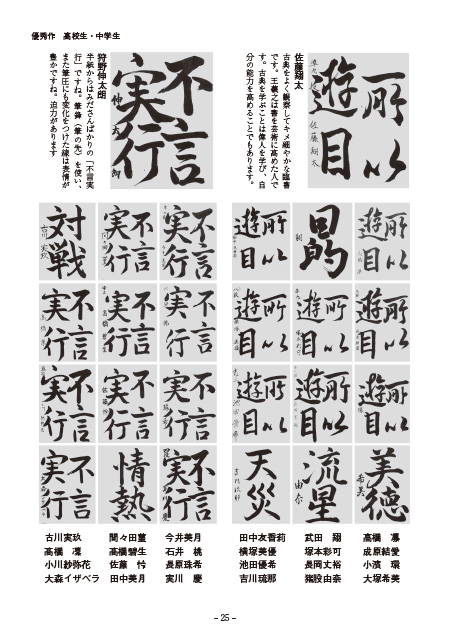 優秀作　高校生・中学生
佐藤翔太
古典をよく観察してキメ細やかな臨書
です。王羲之は書を芸術に高めた人で
す。古典を学ぶことは偉人を学び、自
分の能力を高めることでもあります。
所以
遊目
佐藤翔太
狩野伸太朗
半紙からはみださんばかりの「不言実
行」ですね。筆鋒（筆の先）を使い、
また筆圧にも変化をつけた線は表情が
豊かですね。迫力があります
不言
実行
所以
遊目
所以
遊目
不言
実行
不言
実行
対戦
所以
遊目
所以
遊目
所以
遊目
不言
実行
不言
実行
不言
実行
所以
遊目
所以
遊目
所以
遊目
不言
実行
不言
実行
不言
実行
美徳
流星
由奈
天災
不言
実行
情熱
不言
実行
古川実玖　間々田菫　今井美月　田中友香莉　武田　翔　高橋　凛
高橋　凜　高橋碧生　石井　桃　横塚美優　塚本彩可　成原結愛
小川紗弥花　佐藤　怜　長原珠希　池田優希　長岡丈裕　小濱　環
大森イザベラ　田中美月　実川　慶　吉川琉那　猪股由奈　大塚希美
－25－